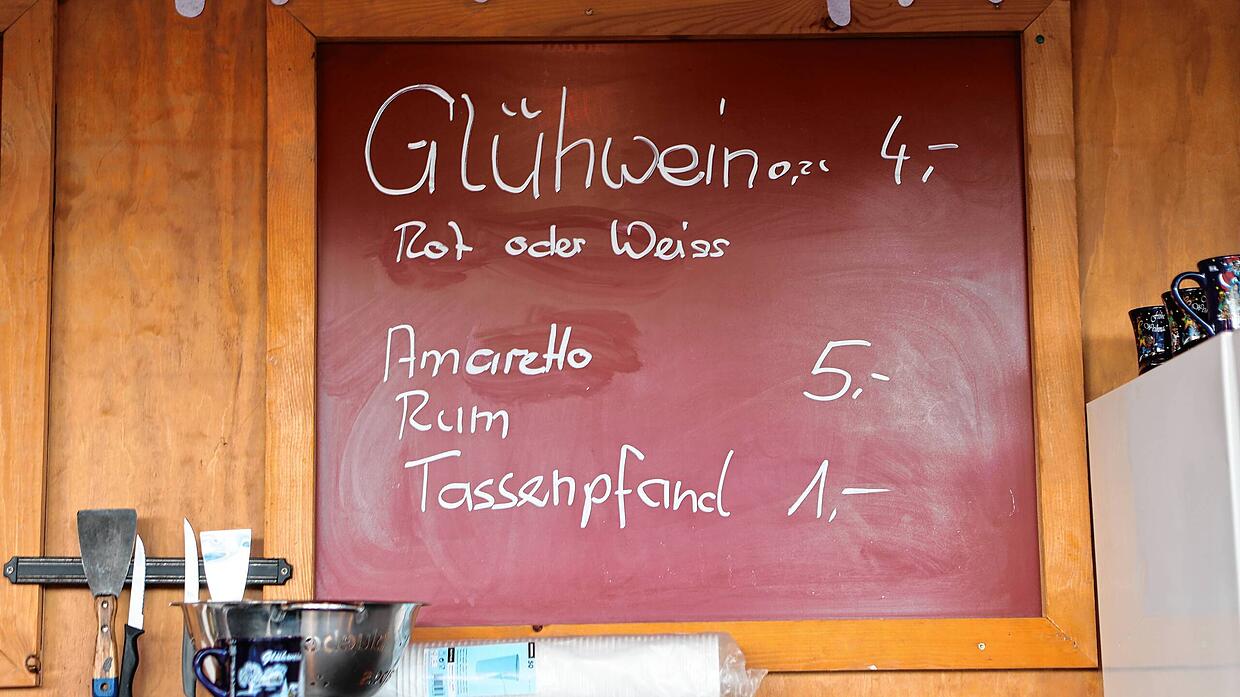 Glühwein 0,2l 4,-
Rot oder Weiss
Amaretto
Rum 5,-
Tassenpfand 1,-
Glühwein
50